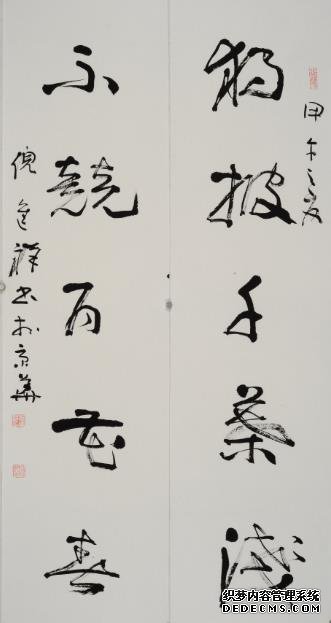 甲午之夏
独披千葉浅
不競百花春
倪進祥书於京華
织梦内容管理系统
DEDECMS.COM